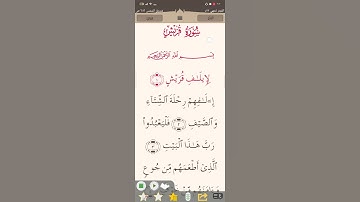 سُورَةُ قُرَيْشٍ
بِسْمِ ٱللَّهِ ٱلرَّحْمَٰنِ ٱلرَّحِيمِ
لِإِيلَٰفِ قُرَيْشٍ ١
إِۦلَٰفِهِمْ رِحْلَةَ ٱلشِّتَآءِ
وَٱلصَّيْفِ ٢ فَلْيَعْبُدُوا۟
رَبَّ هَٰذَا ٱلْبَيْتِ ٣
ٱلَّذِىٓ أَطْعَمَهُم مِّن جُوعٍ